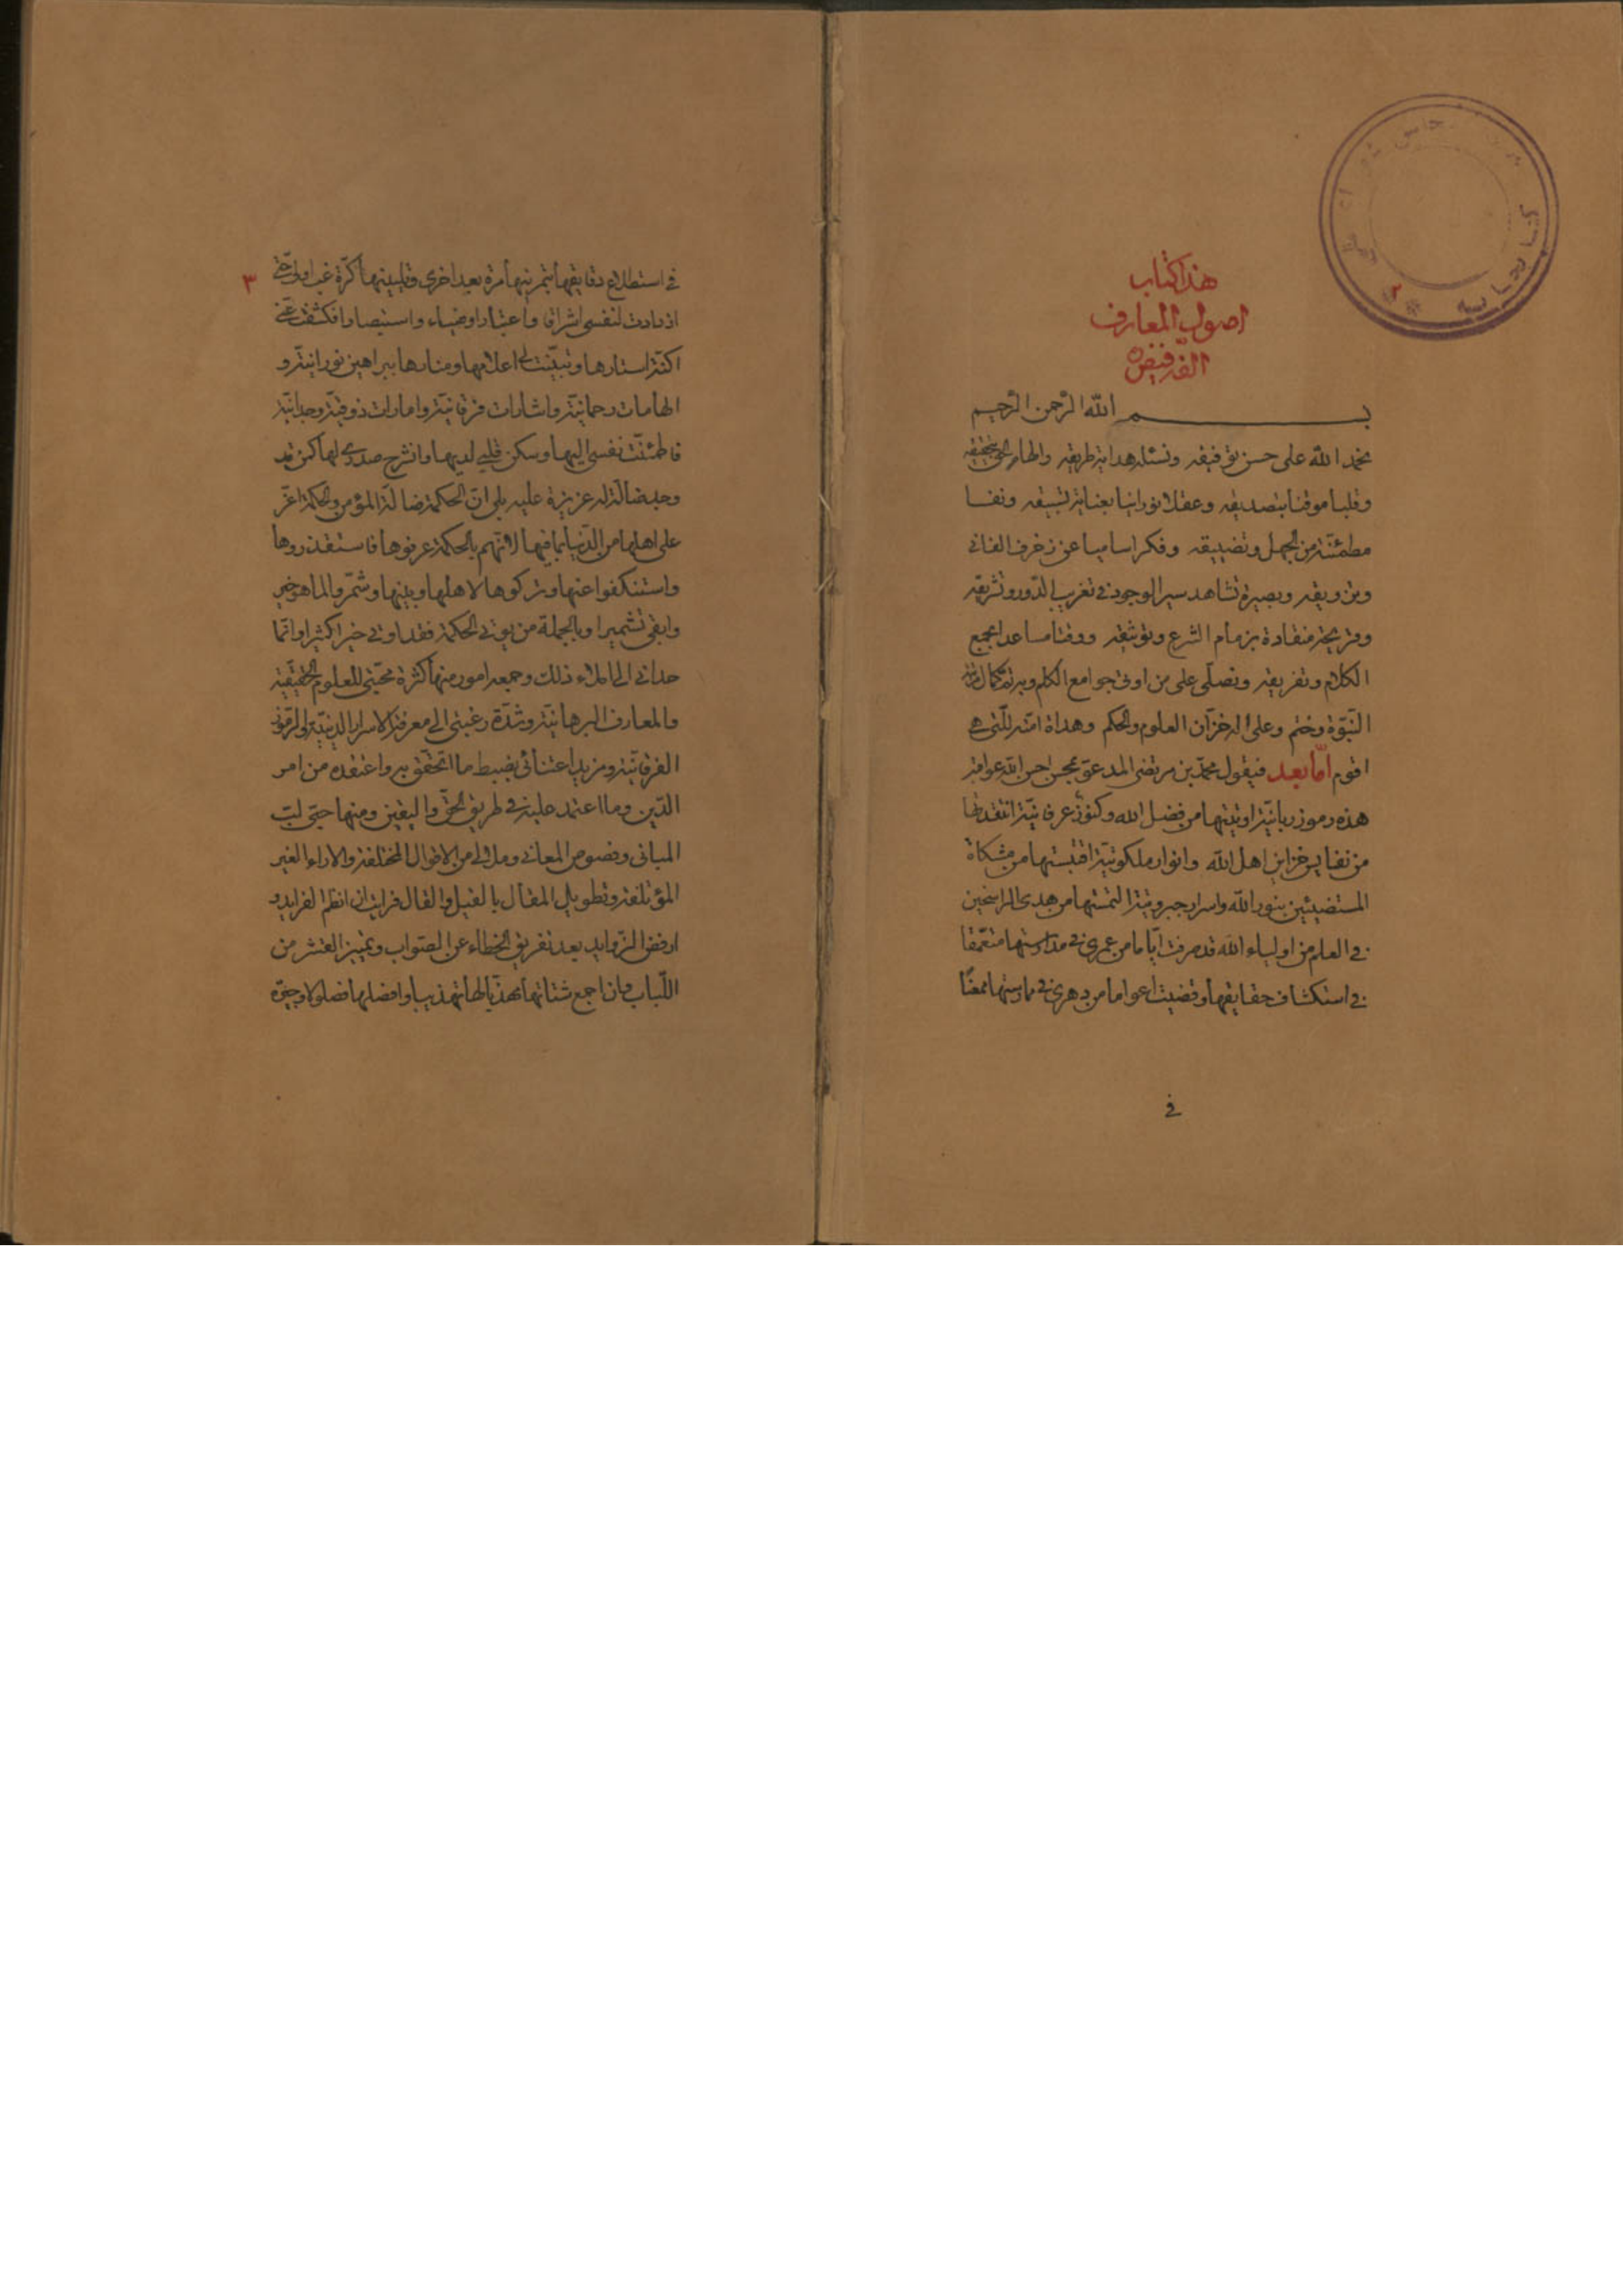 هذا كتاب
اصول المعارف
الفه فيض ره
بسم الله الرحمن الرحيم
نحمد الله على حسن توفيقه ونسئله هداية طريقه والهام الحق بتحقيقه
وقلبا موقنا بتصديقه وعقلا نورانيا بعناية تسبيقه ونفسا
مطمئنة من الجهل وتضييقه وفكرا ساميا عن زخرف الفانى
وتزويقه وبصيرة تشاهد سير الوجود فى تغريب الدور وتشريقه
وقريحة منقادة بزمام الشرع وتوثيقه ووقتا مساعدا بجمع
الكلام وتفريقه ونصلى على من اوتى جوامع الكلم وبه تم كمال
النبوة وختم وعلى اله خزان العلوم والحكم وهداة امته للتى هى
اقوم اما بعد فيقول محمد بن مرتضى المدعو بمحسن احسن الله عواقبه
هذه رموز ربانية اوتيتها من فضل الله وكنوز عرفانية انتقدتها
من نفايس خزاين اهل الله وانوار ملكوتية اقتبستها من مشكاة
المستضيئين بنور الله واسرار جبروتية التمستها من هدى الراسخين
فى العلم من اولياء الله قد صرفت اياما من عمرى فى مدارستها متعمقا
فى استكشاف حقايقها وقضيت اعواما من دهرى فى ممارستها ممعنا
فى
٣
فى استطلاع دقايقها بتمرينها مرة بعد اخرى وتليينها كرة غب اولى حتى
ازدادت لنفسى اشراقا واعتبارا وضياء واستبصارا فكشفت عن
اكثر استارها وتبينت لى اعلامها ومنارها ببراهين نورانية و
الهامات رحمانية واشارات فرقانية وامارات ذوقية وجدانية
فاطمئنت نفسى اليها وسكن قلبى لديها وانشرح صدرى لها كمن قد
وجد ضالة له عزيزة عليه بلى ان الحكمة ضالة المؤمن والحكمة اعز
على اهلها من الدنيا بما فيها لانهم بالحكمة عرفوها فاستقذروها
واستنكفوا عنها وتركوها لاهلها وبنيها وشمروا لما هو خير
وابقى تشميرا وبالجملة من يوتى الحكمة فقد اوتى خيرا كثيرا وانما
حدانى الى املاء ذلك وجمعه امور منها كثرة محبتى للعلوم الحقيقية
والمعارف البرهانية وشدة رغبتى الى معرفة الاسرار الدينية والرموز
الفرقانية ومزيد اعتنائى بضبط ما اتحقق به واعتقده من امر
الدين وما اعتمد عليه فى طريق الحق واليقين ومنها حبى لب
المبانى ونصوص المعانى وملالى من الاقوال المختلفة والاراء الغير
المؤتلفة وتطويل المقال بالقيل والقال فرايت ان انظم الفرايد و
ارفض الزوايد بعد تفريق الخطاء عن الصواب وتمييز القشر من
اللباب وان اجمع شتاتها مهذبا لها تهذيبا وافضلها فصلولا وجيزة